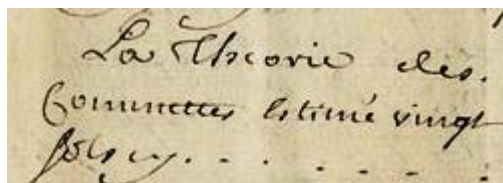 La Theorie des
Commettes Estimé vingt
sols cy. . . . . .